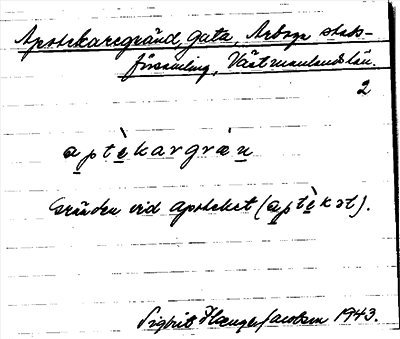 Apotekaregränd, gata, Arboga stads-
församling, Västmanlands län.
2
aptèkargræn
Gränden vid apoteket (aptèkət).
Sigbrit Jacobson 1943.